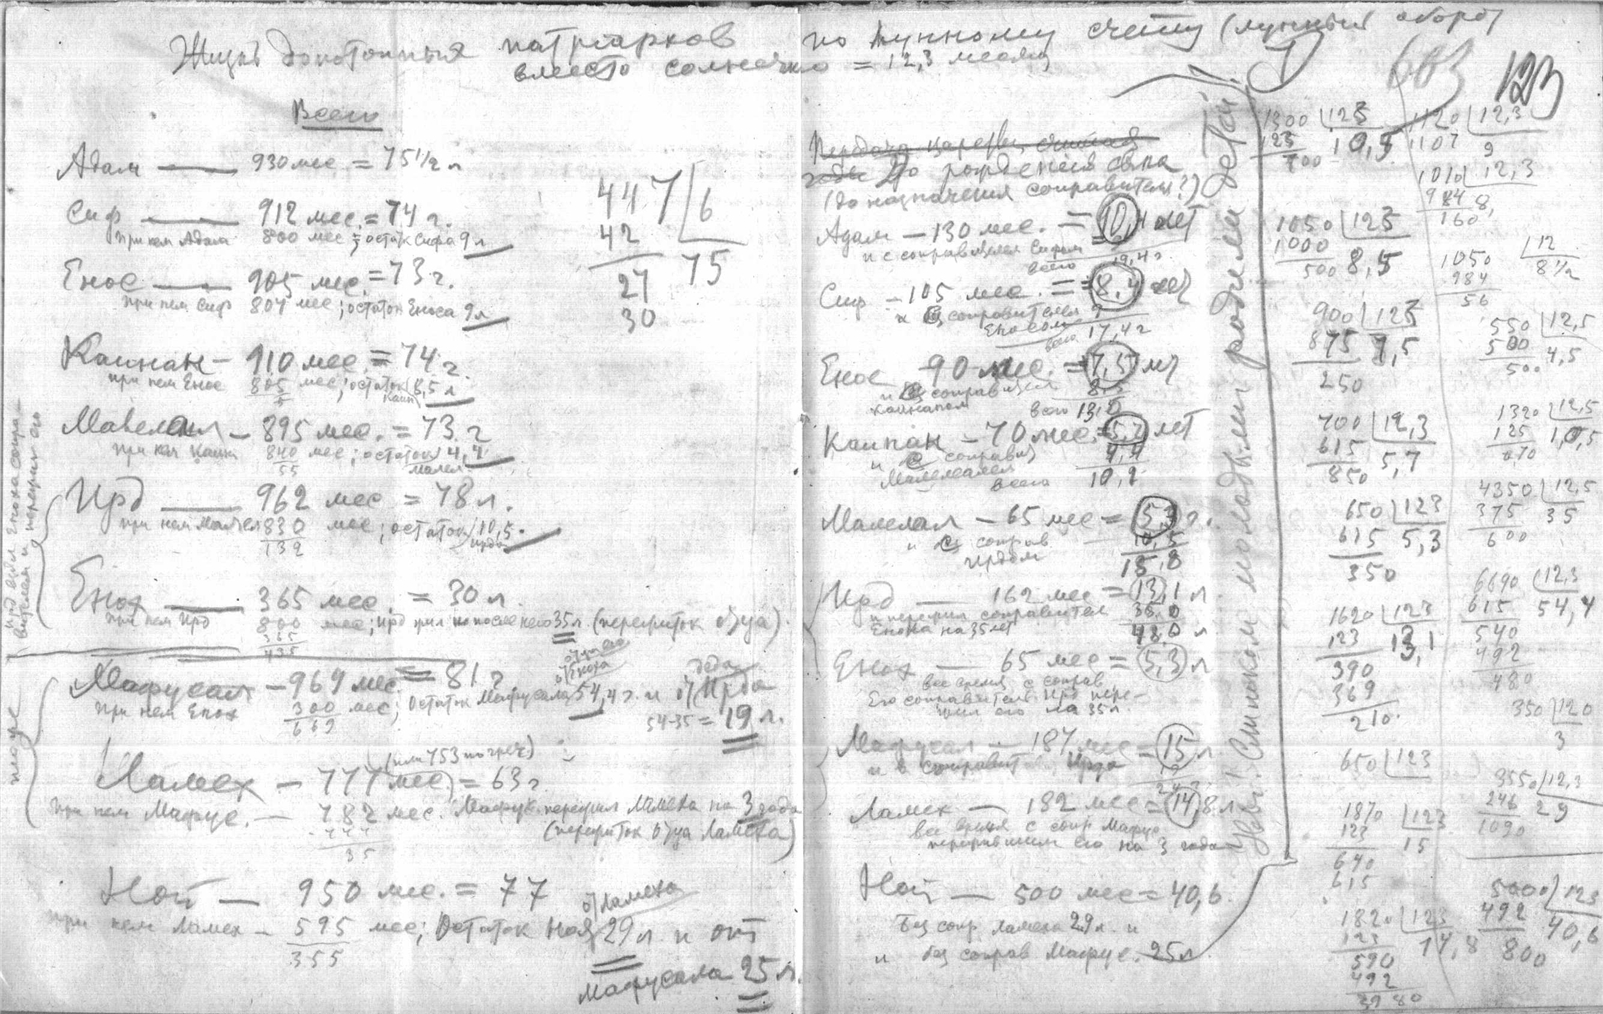 Жизнь допотопных патриархов по лунному счету (лунный оборот
вместо солнечно = 12,3 месяц
Всего
Адам — 930 мес = 75 1/2 л
Сиф — 912 мес. = 74 г.
при нем Адам 800 мес; остаток Сифа 9 л
Енос — 905 мес. = 73 г.
при нем Сиф 807 мес; остаток Еноса 9 л.
Каинан — 910 мес. = 74 г.
при нем Енос 805 мес; остаток Каин 8,5 л
Малелеил — 895 мес. = 73 г
при нем Каин 840 мес; остаток малел 4,4
55
Ирд — 962 мес = 78 л.
при нем Малел 830 мес; остаток Ирда 10,5.
132
Енох — 365 мес. = 30 л.
при нем Ирд 800 мес; Ирд жил по после него 35 л (пережиток отца).
365
435
Мафусал — 969 мес. = 81 г
при нем Енох 300 мес; Остаток Мафусала 54,4 г. и от Ирда
669
от Еноха
деда
54-35 = 19 л.
Ламех — 777 мес) = 63 г
(или 753 по греч)
при нем Мафус. — 782 мес. Мафус. пережил Ламеха на 3 года
(пережиток отца Ламеха)
35
Ной — 950 мес. = 77
при нем Ламех — 595 мес; Остаток Ноя 29 л и от
от Ламеха
355
Мафусала 25 л.
447 | 6
42
75
27
30
Ирд был Еноха сопра-
вителем и пережил его
после
Передача царевы считая
годы До рождения сына
(до назначения соправителя?)
Адам — 130 мес. = 10,4 лет
и с соправителем Сифом
всего 19,4 г
Сиф — 105 мес. = 8,4 лет
и с соправителем 9
Еносом
всего 17,4 г
Енос 90 мес. = 7,5 лет
и с соправителем 8,5
Каинаном
всего
Каинан — 70 мес. = 5,7 лет
и с соправ 4,4
Малелеилем
всего 10,2
Малелеил — 65 мес = 5,3 г.
и с соправ 10,5
Ирдом 15,8
Ирд — 162 мес = 13,1 л
и пережил соправител 35.0
Еноха на 35 лет
48.0 л
Енох — 65 мес = 5,3 л
все время с соправ
Его соправитель Ирд пере-
жил его на 35 л
Мафусал — 187 мес = 15 л
и с соправит Ирда
Ламех — 182 мес = 14,8 л
все время с сопр Мафус
пережившим его на 3 года
Ной — 500 мес = 40,6.
Без сопр Ламеха 29 л. и
и без соправ Мафус. 25 л
Увы! Слишком молодыми родили детей!
603
123
1300 | 123
123
10,5
700
1120 | 12,3
1107 9
1010 | 12,3
984 8,
160
1050 | 123
1000
500 8,5
1050 | 12
984 8 1/2
56
900 | 123
875 7,5
250
550 | 12,5
500 4,5
500
700 | 12,3
615 5,7
850
1320 | 12,5
125 10,5
650 | 123
615 5,3
350
4350 | 12,5
375 35
600
1620 | 123
123 13,1
390
369
210
6690 | 12,3
615 54,4
540
492
480
350 | 120
3
650 | 123
1870 | 123
123 15
640
615
3550 | 12,3
246 29
1090
1820 | 123
123 14,8
590
492
5000 | 123
492 40,6
800